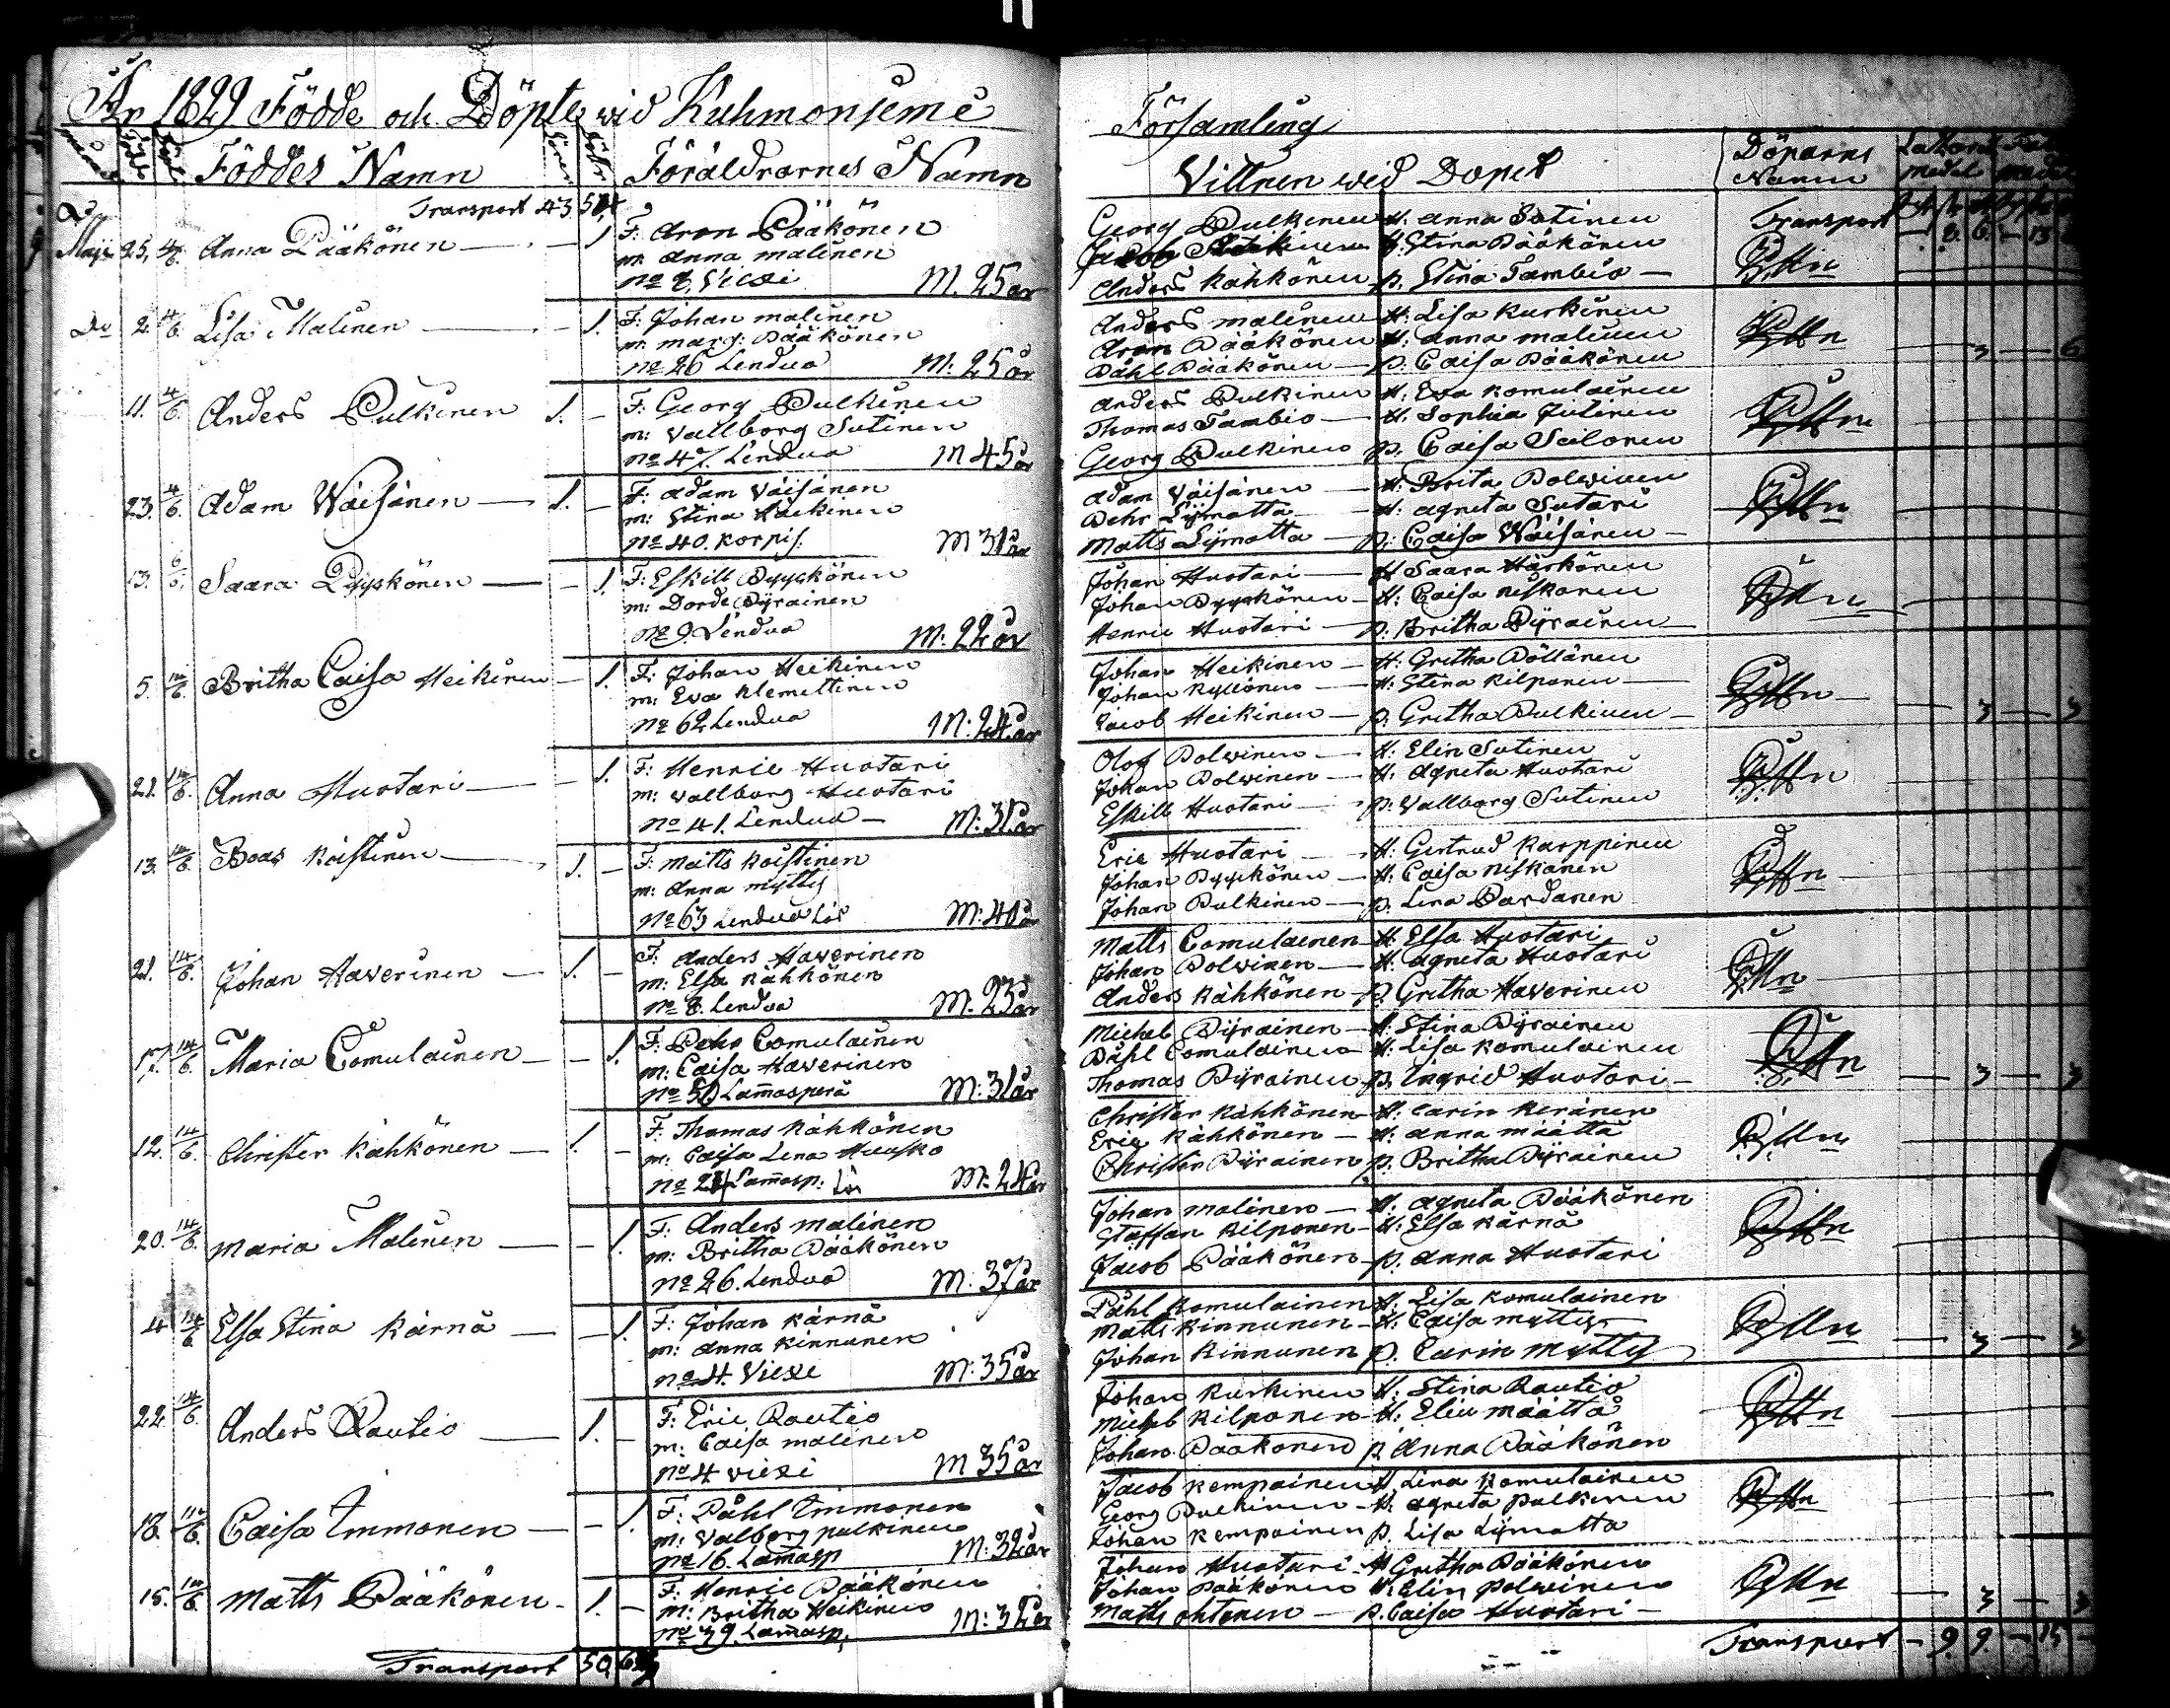 År 1829 Födde och Döpte wid Kuhmoniemi
Församling
Föddes Namn
Föräldrarnes Namn
Vittnen wid Dopet
Döparns Namn
Transport 43
Transport
Maji 25. 4/6. Anna Pääkönen — — 1
F: Aron Pääkönen
m: Anna Malinen
No 2, Viexi M. 25 år
Georg Pulkinen H. Anna Sutinen
Jacob H. Stina Pääkönen
Anders Kähkönen p. Stina Tambio —
Do 2. 4/6 Lisa Malinen — — 1.
F: Johan Malinen
m: Marg: Pääkönen
No 26 Lendua M: 25 år
Anders Malinen H: Lisa Kurkinen
Aron Pääkönen H: Anna Malinen
Påhl Pääkönen — p. Caisa Pääkönen
— 3 — 6
11. 4/6. Anders Pulkinen 1. —
F: Georg Pulkinen
m: Vallborg Sutinen
No 47. Lendua M 45 år
Anders Pulkinen H. Eva Komulainen
Thomas Tambio — H. Sophia Jutinen
Georg Pulkinen p. Caisa Seilonen
23. 4/6. Adam Wäisänen — 1. —
F: Adam Väisänen
m: Stina
No 40. Korpis. M 31 år
Adam Väisänen — H: Brita Polvinen
Pehr Lÿmatta — H: Agneta Sutari
Matts Lÿmatta — p: Caisa Wäisänen —
13. 6/6. Saara Pyyskönen — — 1.
F: Eskill Pyyskönen
m: Dorde Pÿrainen
No 9. Lendua M: 22 år
Johan Huotari — H Saara Härkönen
Johan Pyyskönen — H: Caisa Niskanen
Henric Huotari — p: Britha Pÿrainen —
5. 14/6 Britha Caisa Heikinen — 1.
F: Johan Heikinen
m: Eva Klemettinen
No 62 Lendua M: 24. år
Johan Heikinen — H: Gretha Pöllänen
Johan Kyllönen — H: Stina Kilponen —
Jacob Heikinen — p. Gretha Pulkinen —
— 3 — 3
21. 14/6. Anna Huotari — — 1.
F: Henric Huotari
m: Vallborg Huotari
No 41. Lendua — M: 31. år
Olof Polvinen — H: Elin Sutinen
Johan Polvinen — H: Agneta Huotari
Eskill Huotari — p: Vallborg Sutinen
13. 14/6. Boas Koistinen — 1. —
F: Matts Koistinen
m: Anna Mytty
No 63 Lendua Lös M: 40 år
Eric Huotari — H: Gertrud Karppinen
Johan Pyykönen — H: Caisa Niskanen
Johan Pulkinen — p. Lena Pardanen
21. 14/6. Johan Haverinen — 1. —
F: Anders Haverinen
m: Elsa Kähkönen
No 8. Lendua M. 23 år
Matts Comulainen — H: Elsa Huotari
Johan Polvinen — H: Agneta Huotari
Anders Kähkönen — p. Gretha Haverinen
17. 14/6. Maria Comulainen — — 1.
F: Pehr Comulainen
m: Caisa Haverinen
Lam̄asperä M: 31 år
Michel Pÿrainen — H: Stina Pÿrainen
Påhl Comulainen — H: Lisa Komulainen
Thomas Pÿrainen p. Ingrid Huotari —
— 3 — 3
12. 14/6. Christer Kähkönen — 1. —
F: Thomas Kähkönen
m: Caisa Lena Huusko
Lam̄asp: Lös M: 24 år
Christer Kähkönen — H: Carin Keränen
Eric Kähkönen — H: Anna Määttä
Christer Pÿrainen p. Britha Pÿrainen
20. 14/6. Maria Malinen — — 1.
F: Anders Malinen
m: Britha Pääkönen
No 26. Lendua M: 37 år
Johan Malinen — H. Agneta Pääkönen
Staffan Kilponen — H: Elsa Kärnä
Jacob Pääkönen — p. Anna Huotari
4 14/6 Elsa Stina Kärnä — — 1.
F: Johan Kärnä
m: Anna Kinnunen
No 4. Viexi M: 35 år
Påhl Komulainen H. Lisa Komulainen
Matts Kinnunen — H. Caisa Mytty
Johan Kinnunen p. Carin Mytty
— 3 — 3
22. 14/6. Anders Rautio — 1. —
F: Eric Rautio
m: Caisa Malinen
No 4 Viexi M 35 år
Johan Kurkinen H. Stina Rautio
Michel Kilponen — H: Elin Määttä
Johan Pääkönen p. Anna Pääkönen
18. 14/6. Caisa Immonen — — 1.
F: Påhl Immonen
m: Valborg Pulkinen
No 16. Lam̄asp M: 32 år
Jacob Kempainen H. Lina Komulainen
Georg Pulkinen — H. Agneta Pulkinen
Johan Kempainen p. Lisa Lÿmatta
15. 14/6. Matts Pääkönen — 1. —
F: Henric Pääkönen
m: Britha Heikinen
No 39. Lam̄asp. M: 32 år
Johan Huotari — H Gretha Pääkönen
Johan Pääkönen H. Elin Polvinen
Matts Ohtonen — p. Caisa Huotari —
— 3 — 3
Transport 50
Transport — 9. 9. — 15 —